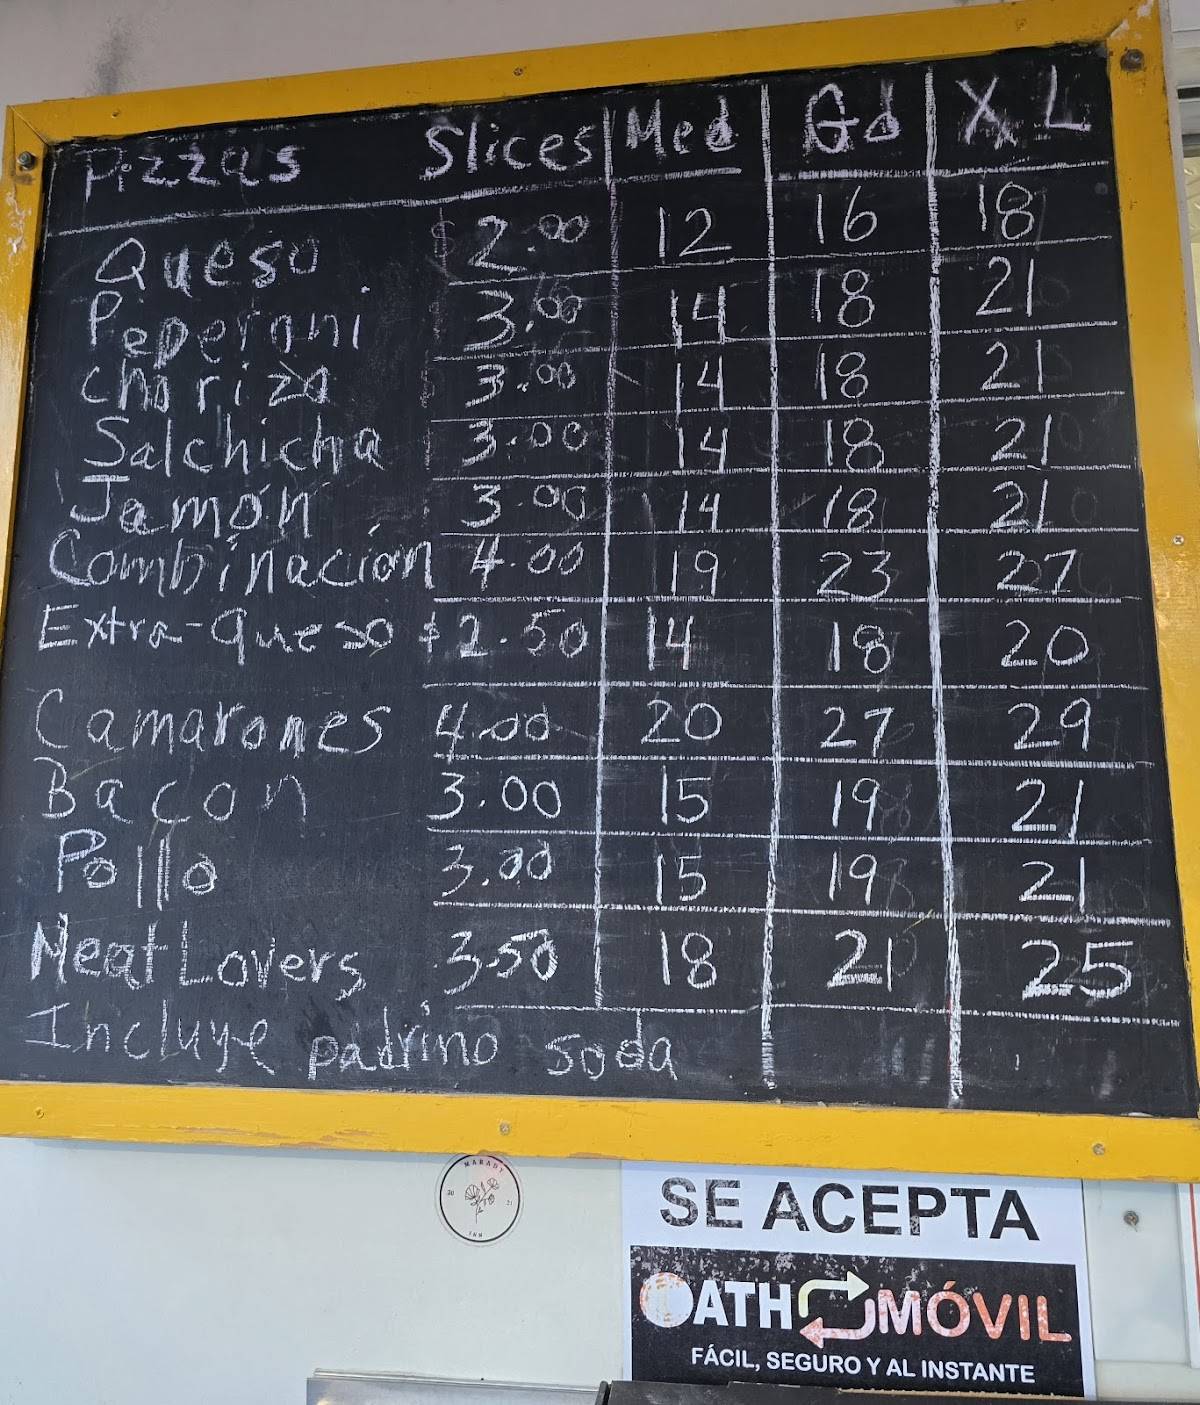 Pizzas Slices Med Gd XL
Queso $2.00 12 16 18
Peperoni 3.00 14 18 21
chorizo 3.00 14 18 21
Salchicha 3.00 14 18 21
Jamón 3.00 14 18 21
Combinación 4.00 19 23 27
Extra-queso $2.50 14 18 20
Camarones 4.00 20 27 29
Bacon 3.00 15 19 21
Pollo 3.00 15 19 21
Meat Lovers 3.50 18 21 25
Incluye padrino soda
MARADY
20 21
INN
SE ACEPTA
ATH MÓVIL
FÁCIL, SEGURO Y AL INSTANTE